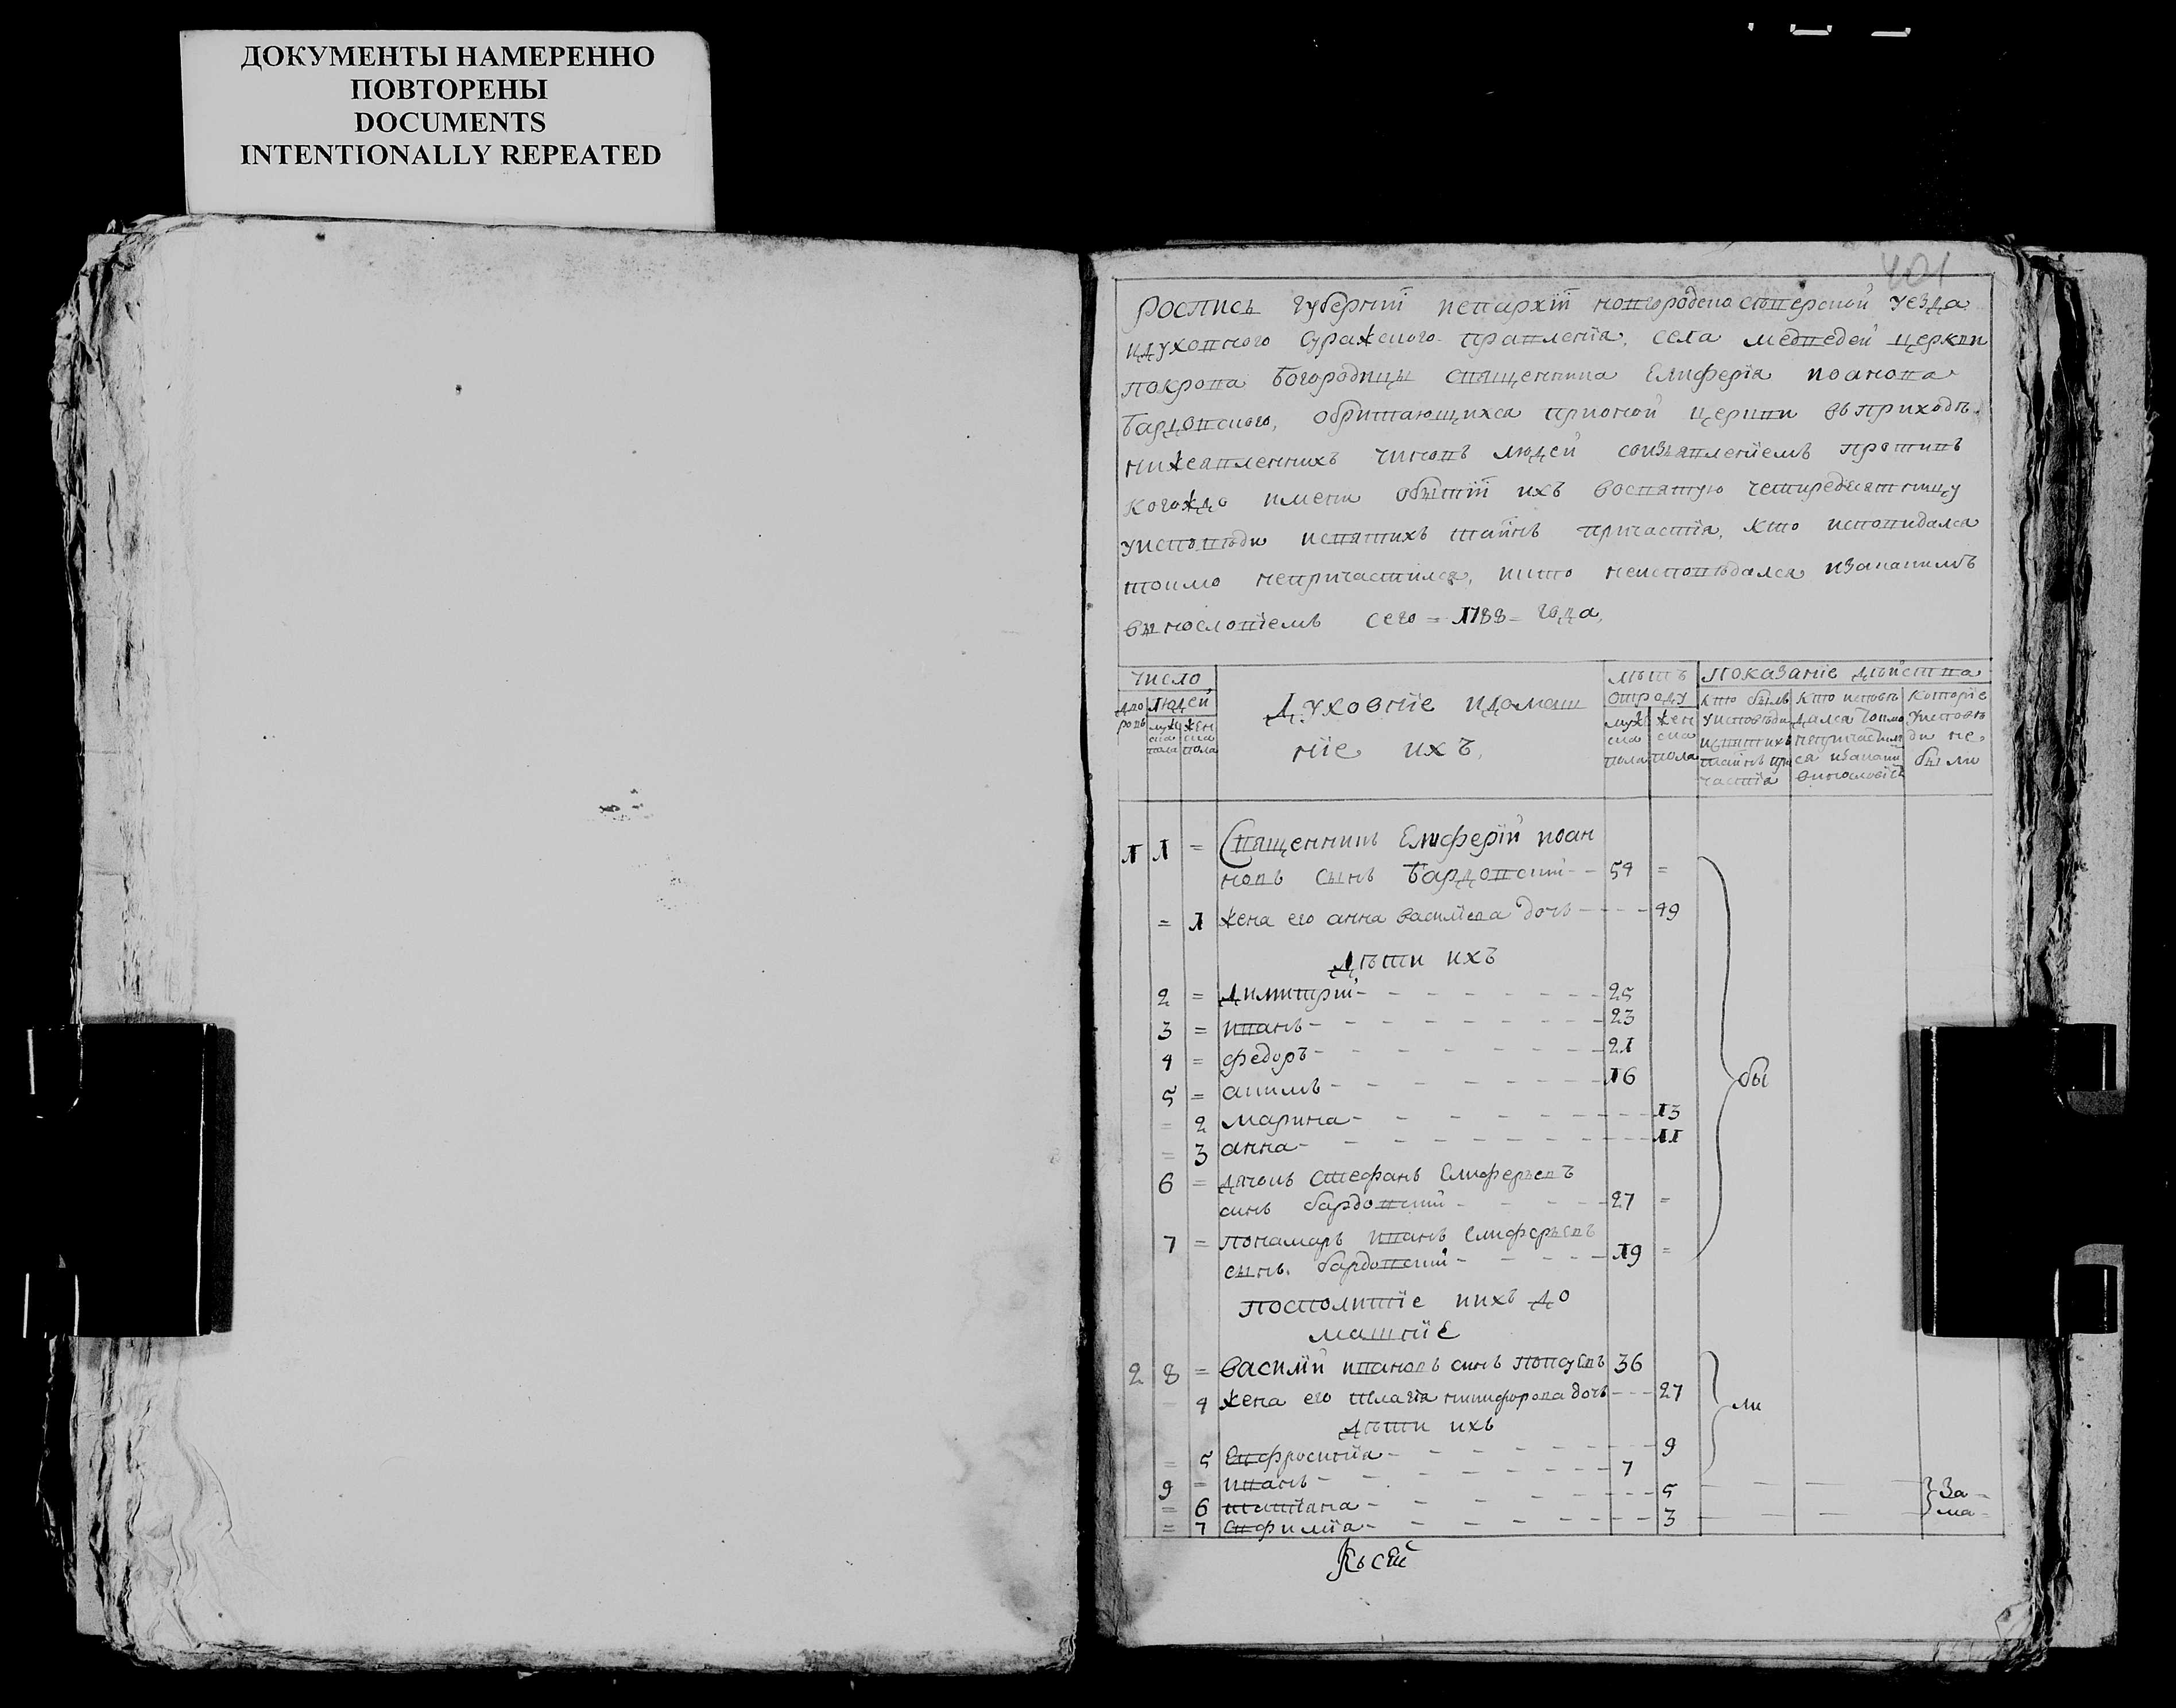 ДОКУМЕНТЫ НАМЕРЕННО
ПОВТОРЕНЫ
DOCUMENTS
INTENTIONALLY REPEATED
401
Роспись Губернии и епархии новгородско северской уезда
и духовного суражского правления, села медведей церкви
покрова Богородицы священника Елиферїа иоанова
Бардовского, обритающихся при оной церкви въ приходѣ
нижеявленнихъ чиновъ людей соизъявленїемъ противъ
когождо имени о бытїи ихъ во святую четиредесятницу
у исповѣди и святихъ таинъ причастїя, кто исповидался
токмо непричастился, и кто неисповѣдался и за какимъ
винословїемъ сего = 1788 = года,
число
лѣтъ
показанїе дѣйства
дворовъ
людей
отроду
муж ска пола
жен ска пола
Духовнїе и домаш
нїе ихъ,
муж ска пола
жен ска пола
кто былъ у исповѣди и святихъ таинъ причастїя
кто исповѣдался токмо непричастился и за каким винословїем
которїе у исповѣди не были
1 1 = Священникъ Елиферїй иоан
новъ сынъ Бардовский - - 54 =
= 1 жена его анна василїева дочь - - - 49
Дѣти ихъ
2 = Димитрий - - - 25
3 = иванъ - - - 23
4 = федоръ - - - 21
5 = акимъ - - - 16
бы
= 2 марина - - - 13
= 3 анна - - - 11
6 = дячокъ стефанъ Елиферьевъ
синъ бардовский - - - 27 =
7 = пономарь иванъ елиферьевъ
сынъ бардовский - - - 19 =
посполитїе и ихъ до
машнїе
2 8 = василїй ивановъ синъ 36
4 жена его никифорова дочь - - - 27
ли
дѣти ихъ
= 5 Евфросинїя - - - 9
9 = иванъ - - - 7
= 6 татїана - - - 5 - - - За -
= 7 евфимїя - - - 3 - - - ма -
Къ сей